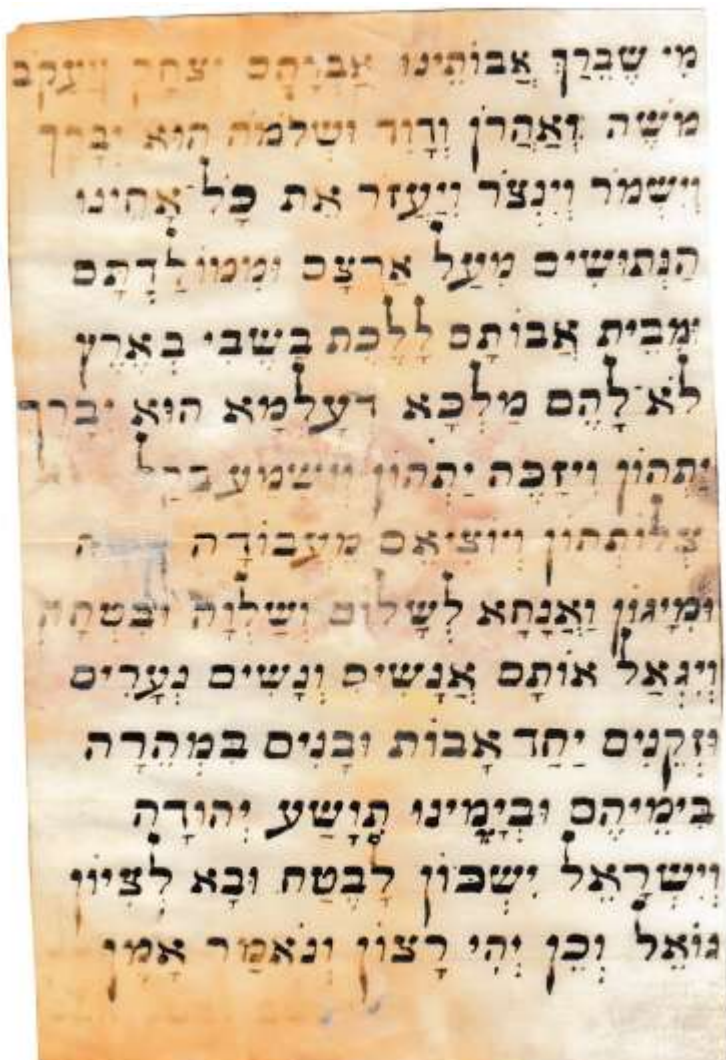 מִי שֶׁבֵּרַךְ אֲבוֹתֵינוּ אַבְרָהָם יִצְחָק וְיַעֲקֹב
מֹשֶׁה וְאַהֲרֹן וְדָוִד וּשְׁלֹמֹה הוּא יְבָרֵךְ
וְיִשְׁמֹר וְיִנְצֹר וְיַעֲזֹר אֶת כָּל־אַחֵינוּ
הַנְּתוּשִׁים מֵעַל אַרְצָם וּמִמּוֹלַדְתָּם
וּמִבֵּית אֲבוֹתָם לָלֶכֶת בַּשֶּׁבִי בְּאֶרֶץ
לֹא־לָהֶם מַלְכָּא דְעָלְמָא הוּא יְבָרֵךְ
יַתְהוֹן וִיזַכֶּה יַתְהוֹן וְיִשְׁמַע בְּקָל
צְלוֹתְהוֹן וְיוֹצִיאֵם מֵעֲבוֹדָה
וּמִיגוֹן וַאֲנָחָא לְשָׁלוֹם וְשַׁלְוָה וּבִטְחָה
וְיִגְאַל אוֹתָם אֲנָשִׁים וְנָשִׁים נְעָרִים
וּזְקֵנִים יַחַד אָבוֹת וּבָנִים בִּמְהֵרָה
בִּימֵיהֶם וּבְיָמֵינוּ תִּוָּשַׁע יְהוּדָה
וְיִשְׂרָאֵל יִשְׁכּוֹן לָבֶטַח וּבָא לְצִיּוֹן
גּוֹאֵל וְכֵן יְהִי רָצוֹן וְנֹאמַר אָמֵן